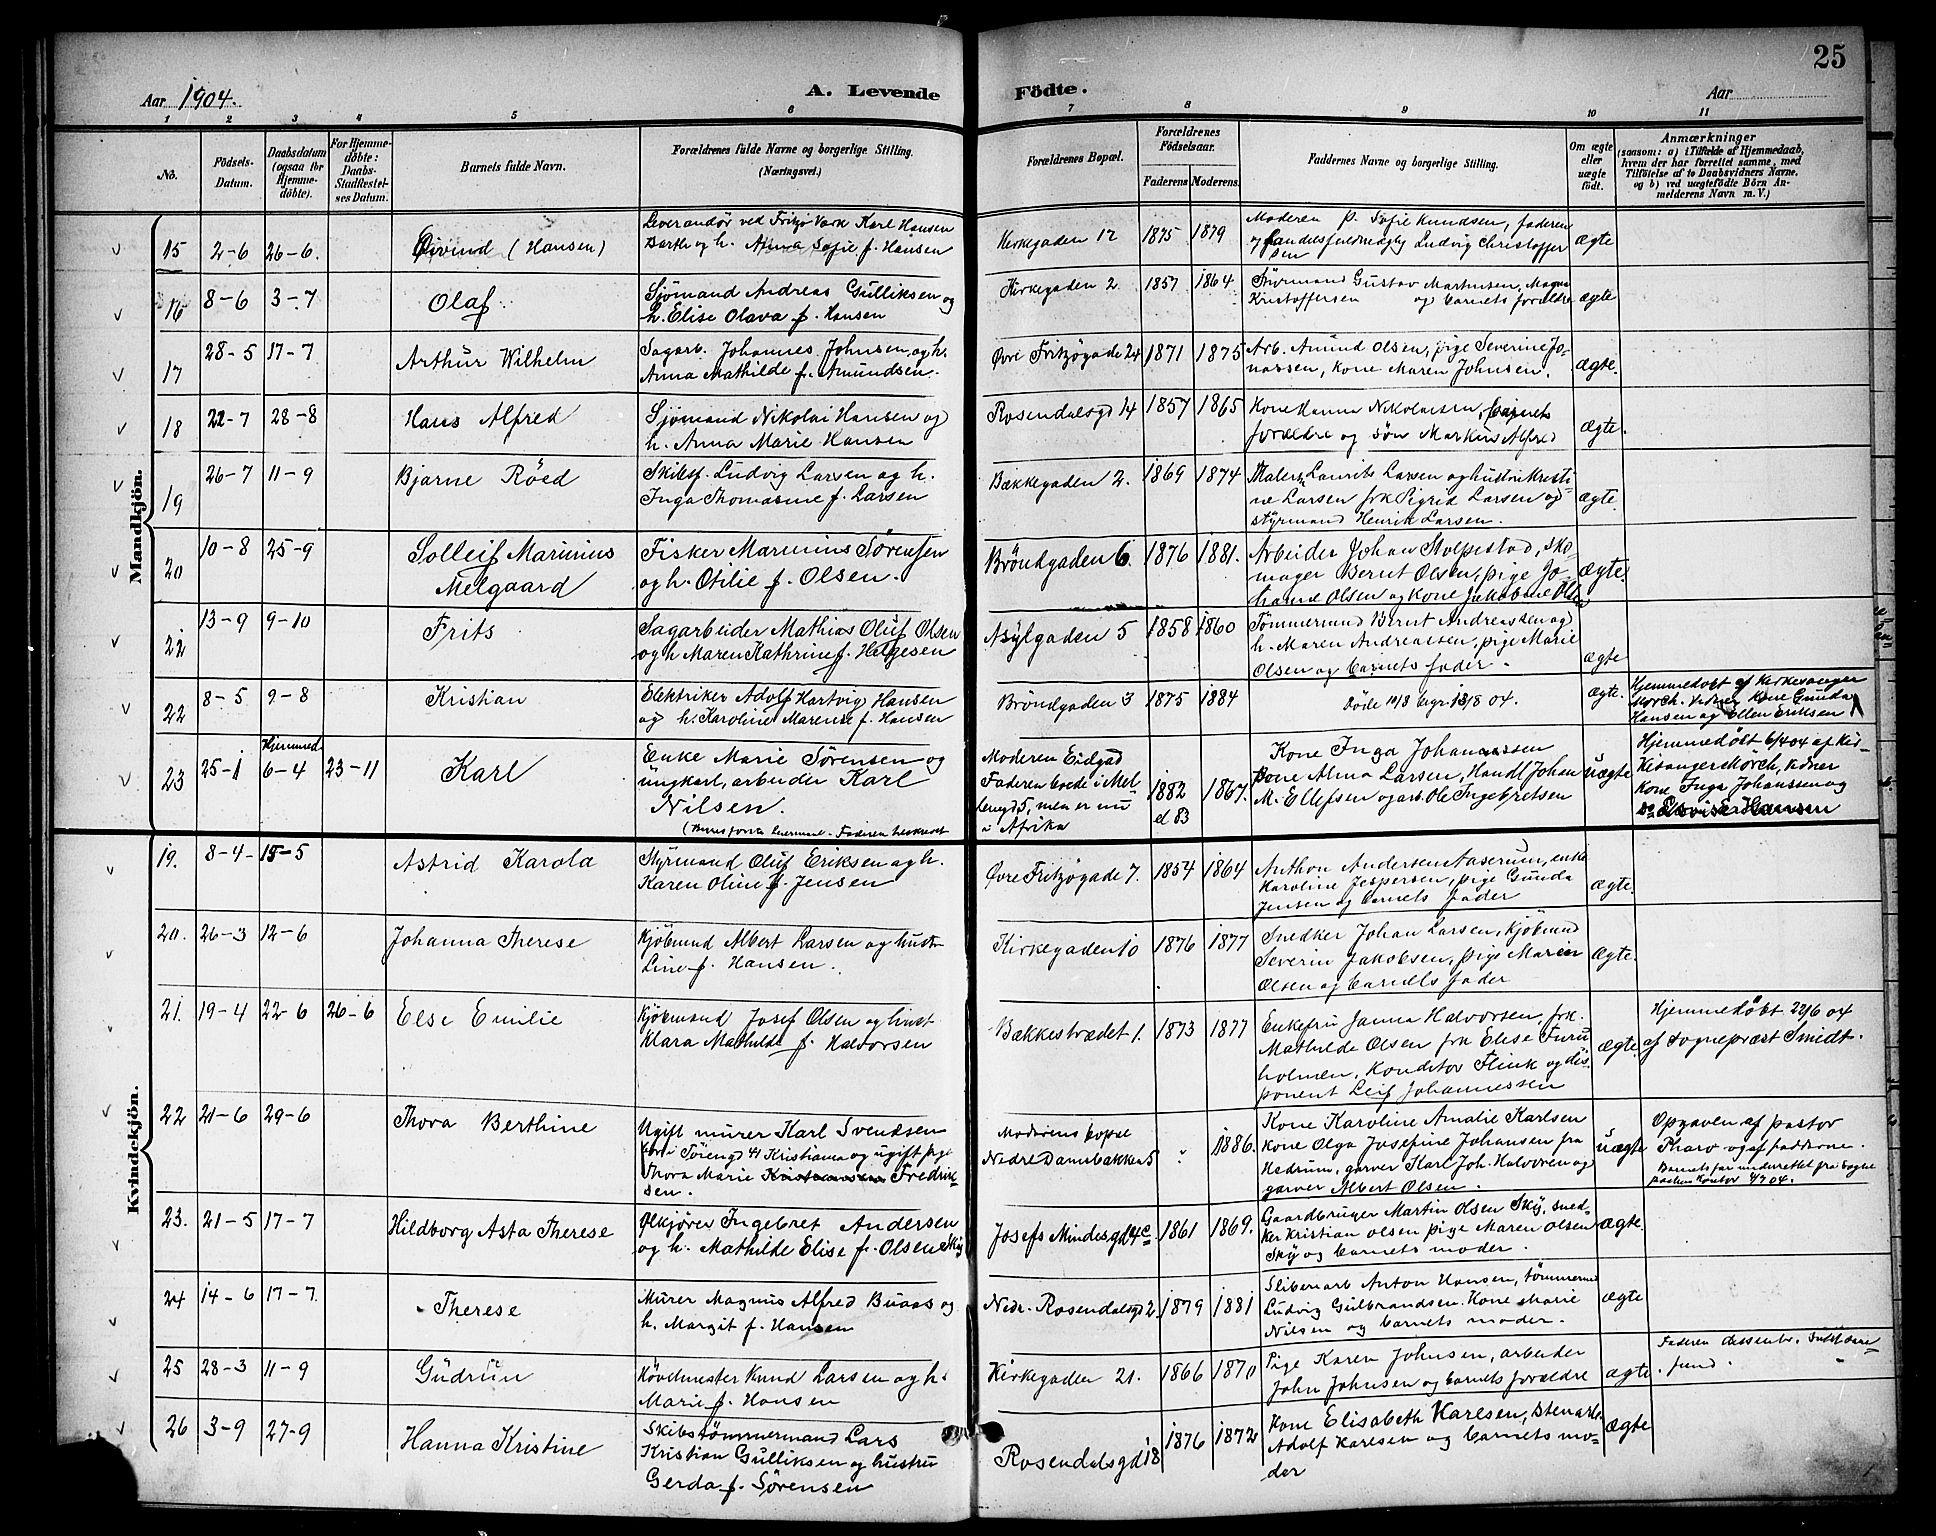 25
Aar 1904.
A. Levende Födte.
Aar
1 2 3 4 5 6 7 8 9 10 11
No.
Födsels-Datum.
Daabsdatum (ogsaa for Hjemmedöbte).
For Hjemmedöbte: Daabs-Stadfæstelses Datum.
Barnets fulde Navn.
Forældrenes fulde Navne og borgerlige Stilling.
(Næringsvei.)
Forældrenes Bopæl.
Forældrenes Födselsaar.
Faderens Moderens.
Faddernes Navne og borgerlige Stilling.
Om ægte eller uægte födt.
Anmærkninger
(saasom: a) i Tilfælde af Hjemmedaab,
hvem der har forrettet samme, med
Tilföielse af to Daabsvidners Navne,
og b) ved uægtefödte Börn Anmelderens Navn m. V.)
Mandkjön.
15 2-6 26-6. Øivind (Hansen)
Leverandör ved Fritzö Værk Karl Hansen
Barth og h. Anna Sofie f. Hansen
Kirkegaden 12 1875 1879
Moderen p. Sofie Knudsen, faderen
og Handelsfuldmægtig Ludvig Christoffersen
ægte
16 8-6 3-7 Olaf
Sjömand Andreas Gulliksen og
h. Elise Olava f. Hansen
Kirkegaden 2. 1857. 1864
Styrmand Gustav Martinsen, Magna
Kristoffersen og barnets forældre
ægte
17 28-5 17-7 Arthur Wilhelm
Sagarb. Johannes Johnsen og h.
Anna Mathilde f. Amundsen.
Øvre Fritzögade 24 1871 1875
Arb. Amund Olsen, pige Severine Jo-
nassen, Kone Maren Johnsen.
ægte.
18 22-7 28-8 Hans Alfred
Sjömand Nikolai Hansen og
h. Anna Marie Hansen
Rosendalsgd 14 1857 1865
Kone Hanna Nikolaisen, barnets
forældre og sön Markus Alfred
ægte.
19 26-7 11-9 Bjarne Röed
Skibsf. Ludvig Larsen og h.
Inga Thomasine f. Larsen
Bækkegaden 2. 1869 1874
Maler Laurits Larsen og hustru Kristi-
ne Larsen frk Sigrid Larsen og
styrmand Henrik Larsen.
ægte.
20 10-8 25-9 Solleif Marinius
Melgaard
Fisker Marinius Sörensen
og h. Otilie f. Olsen.
Bröndgaden 6. 1876 1881.
Arbeider Johan Stolpestad, sko-
mager Bernt Olsen, pige Jo-
hanne Olsen og Kone Jakobine Olsen
ægte.
22 13-9 9-10 Frits
Sagarbeider Mathias Oluf Olsen
og h Maren Kathrine f. Helgesen
Asylgaden 5 1858 1860
Tömmermand Bernt Andreassen og
h. Maren Andreassen, pige Marie
Olsen og barnets fader.
ægte
22 8-5 9-8 Kristian
Elektriker Adolf Hartvig Hansen
og h. Karoline Marense f. Hansen
Bröndgaden 3 1875 1884
Döde 10/8 begr. 13/8 04.
ægte.
Hjemmedöbt af Kirkesanger
Mörch. Vidner Kone Gunda
Hansen og Ellen Eriksen
23 25-1 Hjemmed. 6-4 23-11 Karl
Enke Marie Sörensen og
ungkarl, arbeider Karl
Nilsen.
Moderen Eidgad
Faderen boede i Mel
lengd 5, men er nu
i Afrika
1882
el 83
1867.
Kone Inga Johannessen
Kone Alma Larsen, Handl. Johan
M. Ellefsen og arb. Ole Ingebretsen
uægte
Hjemmedöbt 6/4 04 af Kir-
kesanger Mörch, Vidner
Kone Inga Johanssen og
Kvindekjön.
19. 8-4- 15-5 Astrid Karola
Styrmand Oluf Eriksen og h.
Karen Oline f. Jensen
Øvre Fritzögade 7. 1854 1864
Anthon Andersen Aaserum, enke
Karoline Jespersen, pige Gunda
Jensen og barnets fader
ægte.
20. 26-3 12-6 Johanna Therese
Kjöbmand Albert Larsen og hust-
Line f. Hansen.
Kirkegaden 10 1876 1877
Snedker Johan Larsen, Kjöbmd
Severin Jakobsen, pige Maren
Olsen og barnets fader
ægte.
21. 19-4 22-6 26-6 Else Emilie
Kjöbmand Josef Olsen og hust
Klara Mathilde f. Halvorsen
Bækkestrædet 1. 1873 1877
Enkefru Janna Halvorsen, frk.
Mathilde Olsen frk Elise Furu
holmen, Konditor Flink og dis-
ponent Leif Johannessen
ægte.
Hjemmedöbt 22/6 04
af Sognepræst Smidt.
22 21-6 29-6 Thora Berthine
Ugift murer Karl Svendsen
bor i Törengd 41 Kristiania og ugift pige
Thora Marie Kristiansen Fredrik-
sen.
Moderens bopæl
Nedre Damebakken 5
" 1886.
Kone Karoline Amalie Karlsen
Kone Olga Josefine Johansen fra
Hedrum, garver Karl Joh. Halvoren og
garver Albert Olsen.
uægte
Opgaven af pastor
Tharo og af faddrene.
23. 21-5 17-7 Hildborg Asta Therese
Ølkjörer Ingebret Andersen
og h. Mathilde Elise f. Olsen Sky
Josefs Mindesgd 4c 1861 1869.
Gaardbruger Martin Olsen Sky, sned-
ker Kristian Olsen pige Maren Olsen
Sky og barnets moder.
ægte.
24 14-6 17-7. Therese
Murer Magnus Alfred Buaas og
h. Margit f. Hansen
Nedr. Rosendalsgd 2. 1879 1881
Sliberiarb Anton Hansen, tömmermd
Ludvig Gulbrandsen. Kone Marie
Nilsen og barnets moder.
ægte
25 28-3 11-9 Gudrun
Kövelmester Knud Larsen og h.
Marie f. Hansen
Kirkegaden 21. 1866 1870
Pige Karen Johnsen, arbeider
John Johnsen og barnets forældre
ægte.
Faderen dissenter.
26 3-9 27-9 Hanna Kristine
Skibstömmermand Lars
Kristian Gulliksen og hustru
Gerda f. Sörensen
Rosendalsgd 18 1876 1872
Kone Elisabeth Karlsen, Stenarb.
Adolf Karlsen og barnets mo-
der
ægte